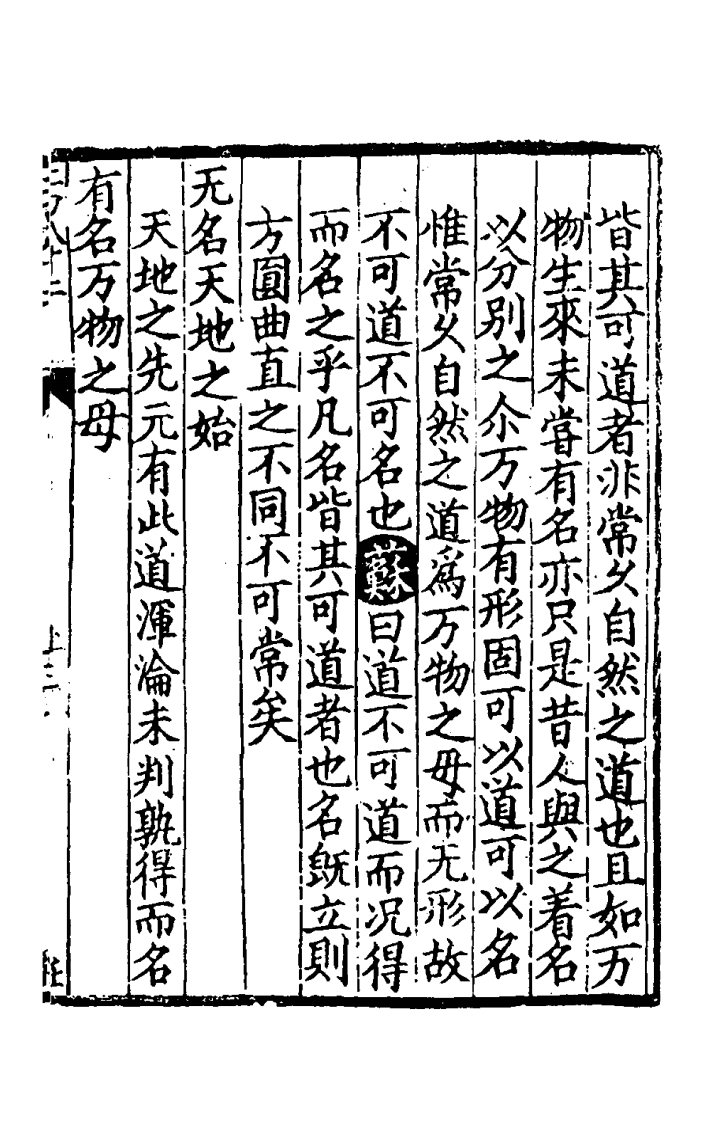 皆其可道者非常久自然之道也且如万
物生來未嘗有名亦只是昔人與之着名
以分別之尒万物有形固可以道可以名
惟常久自然之道為万物之母而无形故
不可道不可名也蘇曰道不可道而况得
而名之乎凡名皆其可道者也名既立則
方圓曲直之不同不可常矣
无名天地之始
天地之先元有此道渾淪未判孰得而名
有名万物之母